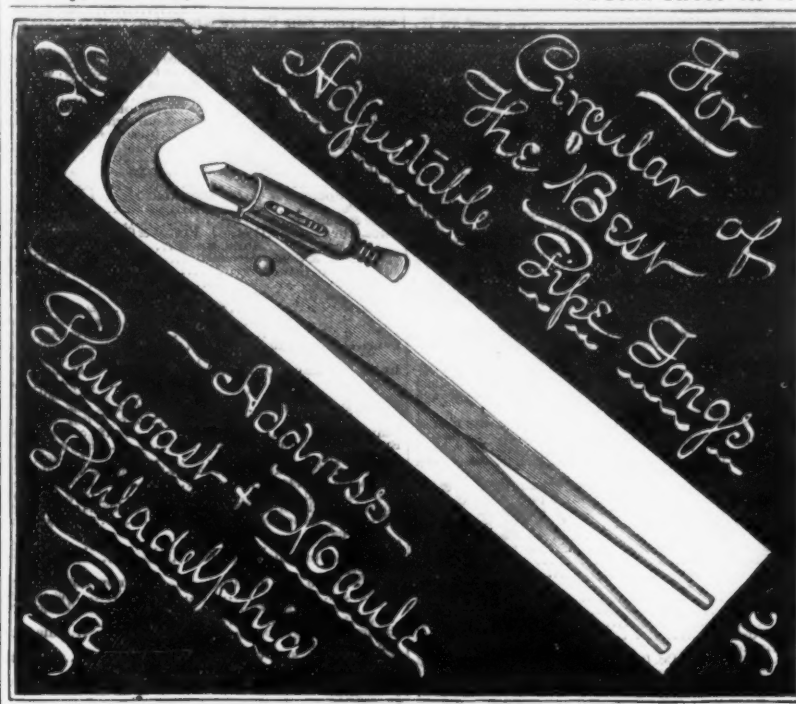 For
Circular of
The Best
Adjustable
Pipe Tongs
-Address-
Pancoast & Maule
Philadelphia
Pa